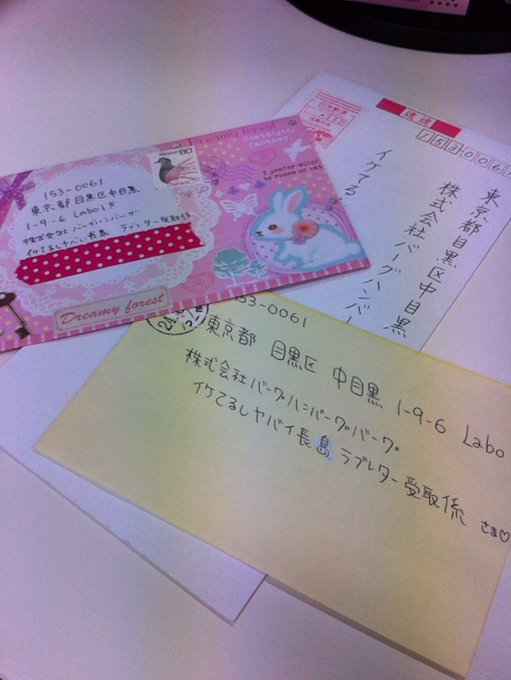 Dreamy forest
80
I prefer wild
153-0061
東京都 目黒区中目黒
1-9-6 Labo 1F
株式会社 バーグハンバーグ
イケてるしヤバい長島 ラブレター受取係
Dreamy forest
速達
東京都目黒区中目黒
株式会社バーグハンバー
イケてる
153-0061
東京都 目黒区 中目黒 1-9-6 Labo
株式会社バーグハンバーグバーグ
イケてるしヤバイ長島 ラブレター受取係 さま♡